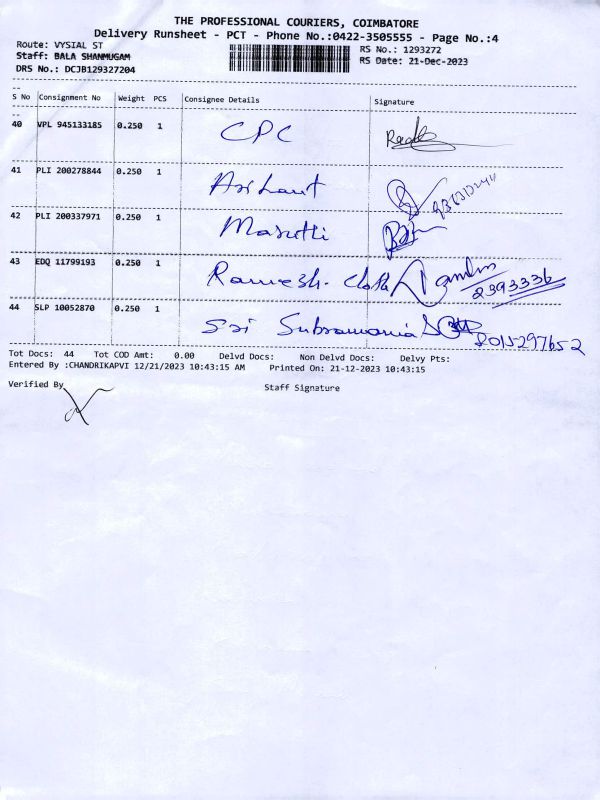 THE PROFESSIONAL COURIERS, COIMBATORE
Delivery Runsheet - PCT - Phone No.:0422-3505555 - Page No.:4
Route: VYSIAL ST RS No.: 1293272
Staff: BALA SHANMUGAM RS Date: 21-Dec-2023
DRS No.: DCJB129327204
S No Consignment No Weight PCS Consignee Details Signature
40 VPL 945133185 0.250 1 CPC
41 PLI 200278844 0.250 1 Arihant
42 PLI 200337971 0.250 1 Maruthi
43 EDQ 11799193 0.250 1 Ramesh. 2393336
44 SLP 10052870 0.250 1 Sri Subramania 8015297652
Tot Docs: 44 Tot COD Amt: 0.00 Delvd Docs: Non Delvd Docs: Delvy Pts:
Entered By :CHANDRIKAPVI 12/21/2023 10:43:15 AM Printed On: 21-12-2023 10:43:15
Verified By Staff Signature